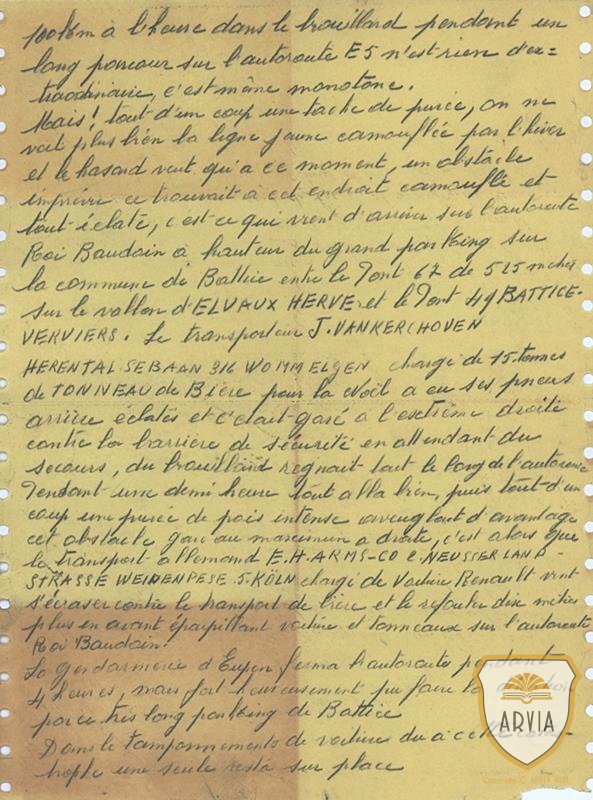 100km à l'heure dans le brouillard pendant un
long parcour sur l'autoroute E5 n'est rien d'ex=
traodinaire, c'est même monotone.
Mais! tout d'un coup une tache de purée, on ne
voit plus bien la ligne jaune camouflée par l'hiver
et le hasard veut qu'a ce moment, un obstacle
imprévu ce trouvait à cet endroit camouflé et
tout éclate, c'est ce qui vient d'arriver sur l'autoroute
Roi Baudoin à hauteur du grand parking sur
la commune de Battice entre le Pont 67 de 525 mètres
sur le vallon d'ELVAUX HERVE et le Pont 49 BATTICE-
VERVIERS. Le transporteur J. VANKERCHOVEN
HERENTALSEBAAN 316 WOMMELGEN chargé de 15 tonnes
de TONNEAU de Bière pour la Noël a eu ses pneus
arrière éclatés et c'était garé à l'extrème droite
contre la barrière de sécurité en attendant du
secours, du brouillard regnait tout le long de l'autoroute
Pendant une demi heure tout alla bien, puis tout d'un
coup une purée de pois intense aveuglant d'avantage
cet obstacle garé au maximum a droite, c'est alors que
le transport allemand E.H. ARMS-CO 2, NEUSSERLAND-
STRASSE WEIDENPESE 5. KÖLN chargé de Voiture Renault vient
s'écraser contre le transport de bière et le refouler dix mètres
plus en avant éparpillant voiture et tonneaux sur l'autoroute
Roi Baudoin.
La Gendarmerie d'Eupen ferma l'autoroute pendant
4 heures, mais fort heureusement pu faire la
par ce très long parking de Battice
Dans le tamponnements de voiture du a cette
trophe une seule resta sur place
ARVIA
Copyright © ARVIA ASBL